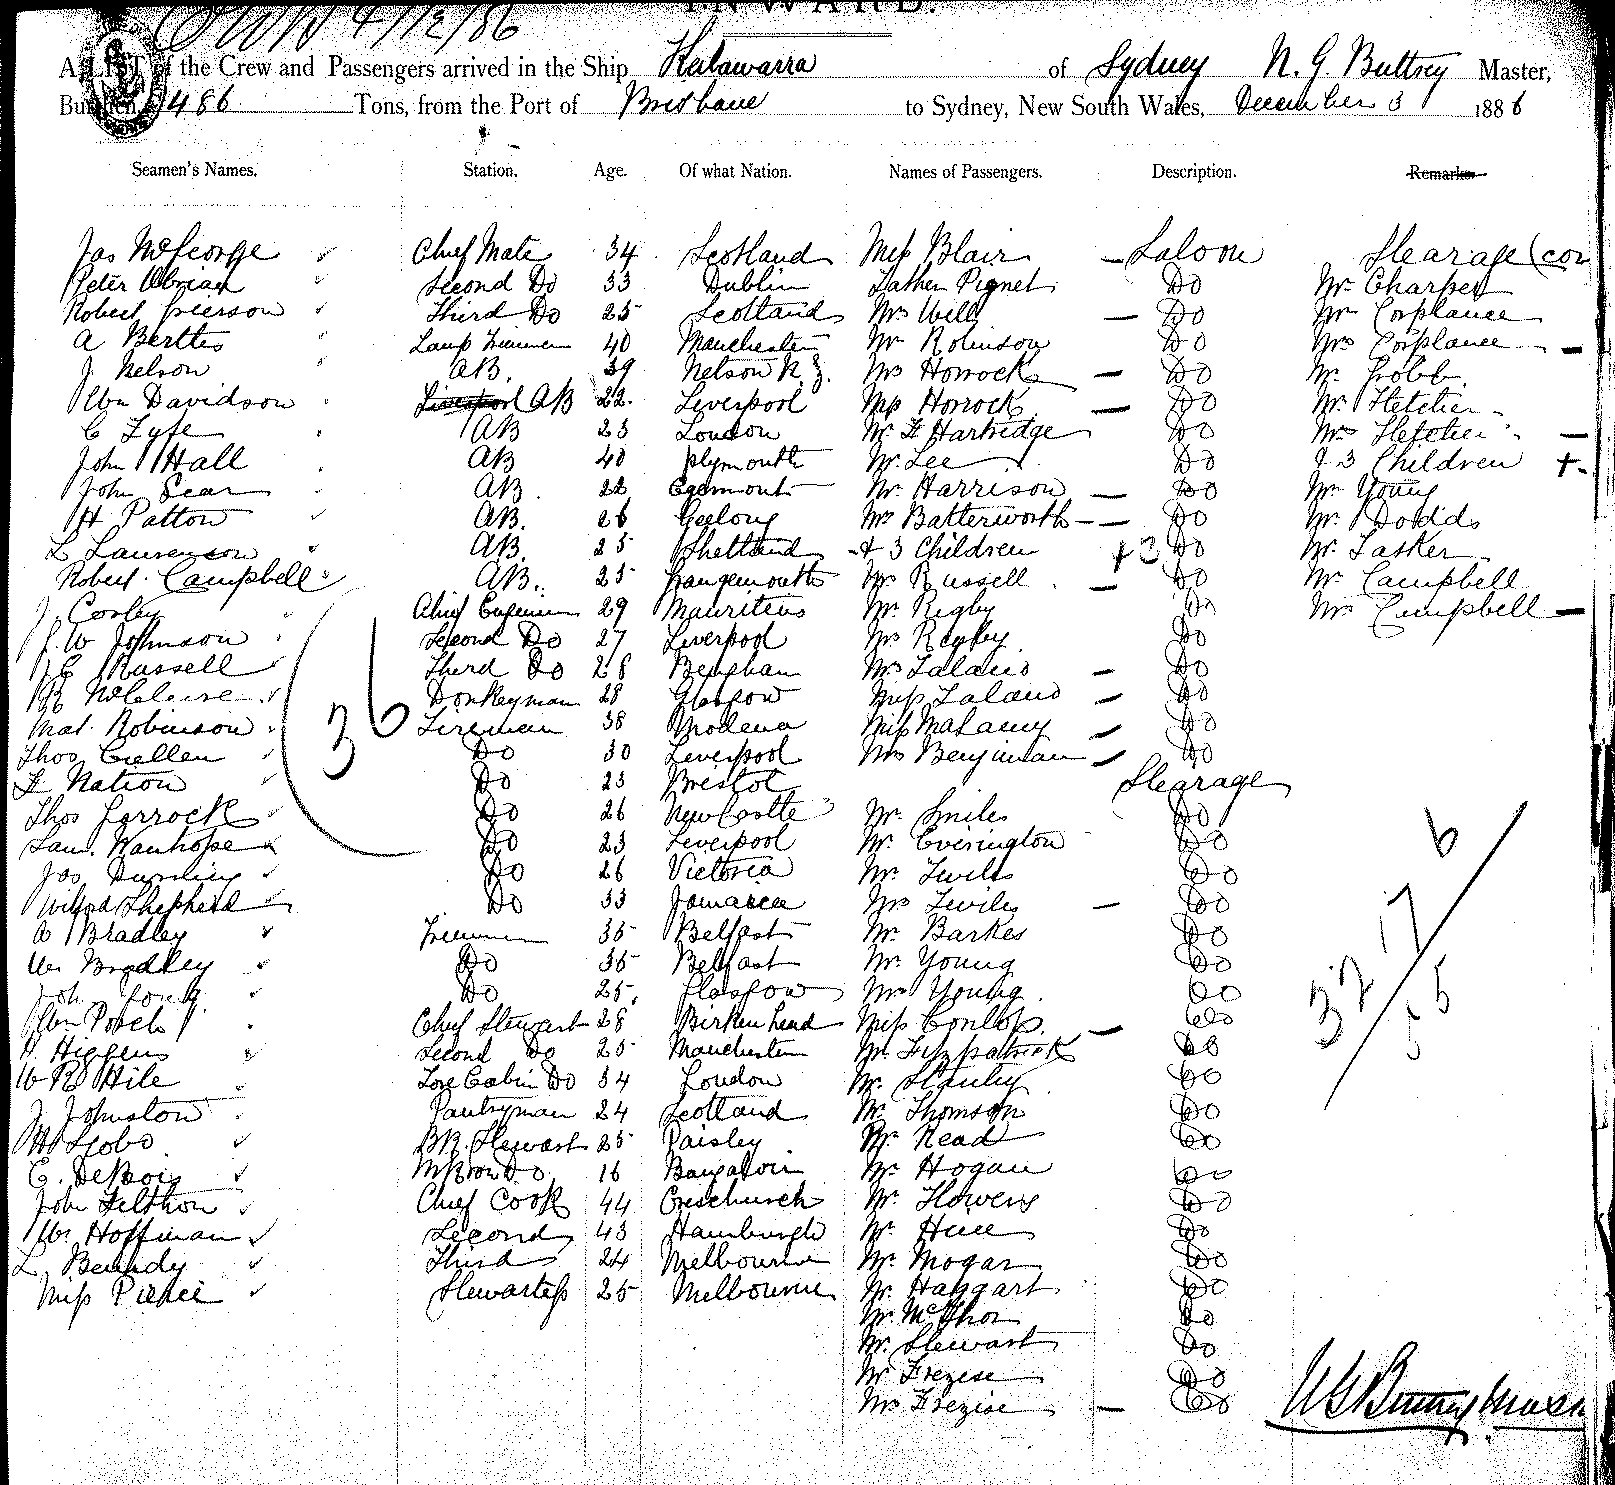 INWARD.
4/12/86
A LIST of the Crew and Passengers arrived in the Ship Keilawarra of Sydney N. G. Buttrey Master,
Burthen 486 Tons, from the Port of Brisbane to Sydney, New South Wales, December 3 1886
Seamen's Names. Station. Age. Of what Nation. Names of Passengers. Description. Remarks.
Jas McGeorge Chief Mate 34 Scotland Miss Blair — Saloon Stearage (con
Peter Obrian Second Do 33 Dublin Father Pignet Do Mr Charper
Robert Grerson Third Do 25 Scotland Mrs Will — Do Mr Corplance
A Berttes Lamp Trimmer 40 Manchester Mr Robinson Do Mrs Corplance —
J. Nelson AB. 39 Nelson N.Z. Mrs Horrocks — Do Mr Grobb.
Wm Davidson Liverpool AB 22. Liverpool Miss Horrocks — Do Mr Fletcher
C Fyfe AB 23 London Mr F Hartridge Do Mrs Fletcher —
John Hall AB 40 Plymouth Mr Lee Do & 3 Children +
John Sear AB. 22 Egremont Mr. Harrison — Do Mr Young
H Patton AB. 26 Geelong Mrs Batterworth — Do Mr. Dodds
L Laurenson AB. 25 Shetland & 3 Children +3 Do Mr. Tasker
Robert Campbell AB. 25 Grangemouth Mr Russell — Do Mr Campbell
J. Corley Chief Engineer 29 Mauritius Mr. Rigby Do Mrs Campbell —
J. W Johnson Second Do 27 Liverpool Mrs Rigby Do
J E Russell Third Do 28 Bengham Mrs Laland — Do
R McCleire Donkeyman 28 Glasgow Miss Laland — Do
Mat. Robinson Fireman 38 Modena Miss Malaney — Do
Thos Cullen Do 30 Liverpool Mrs Benjiman — Do
F Nation Do 23 Bristol Stearage
Thos Gorrock Do 26 NewCastle Mr. Smiles Do
Sam. Wanhope Do 23 Liverpool Mr. Everington Do
Jas Do 26 Victoria Mr. Twiles Do
Wilfrd Shepherd Do 33 Jamaica Mrs Twiles — Do
A Bradley Trimmer 35 Belfast Mr. Barkes Do
Wm Bradley Do 35 Belfast Mr. Young Do
John Young Do 25 Glasgow Mrs Young Do
Wm Porch Chief Stewart 28 Birkenhead Miss Conlop. — Do
H. Higgens Second Do 25 Manchester Mr. Fitzpatrick Do
W R Hile Fore Cabin Do 34 London Mr. Stanley Do
J Johnston Pantryman 24 Scotland Mr. Thomson Do
BR. Stewart 25 Paisley Mr. Read Do
C. DeBois Do 16 Mr. Hogan Do
John Felthon Chief Cook 44 Creschurch Mr. Flowers Do
Wm Hoffman Second 43 Hamburgh Mr. Huee Do
L. Beandy Third 24 Melbourne Mr. Mogar Do
Miss Pierce Stewartess 25 Melbourne Mr. Haggart Do
Mr. McThor Do
Mr. Stewart Do
Mr Frezise Do
Mrs Frezise — Do
36
6
17
32
55